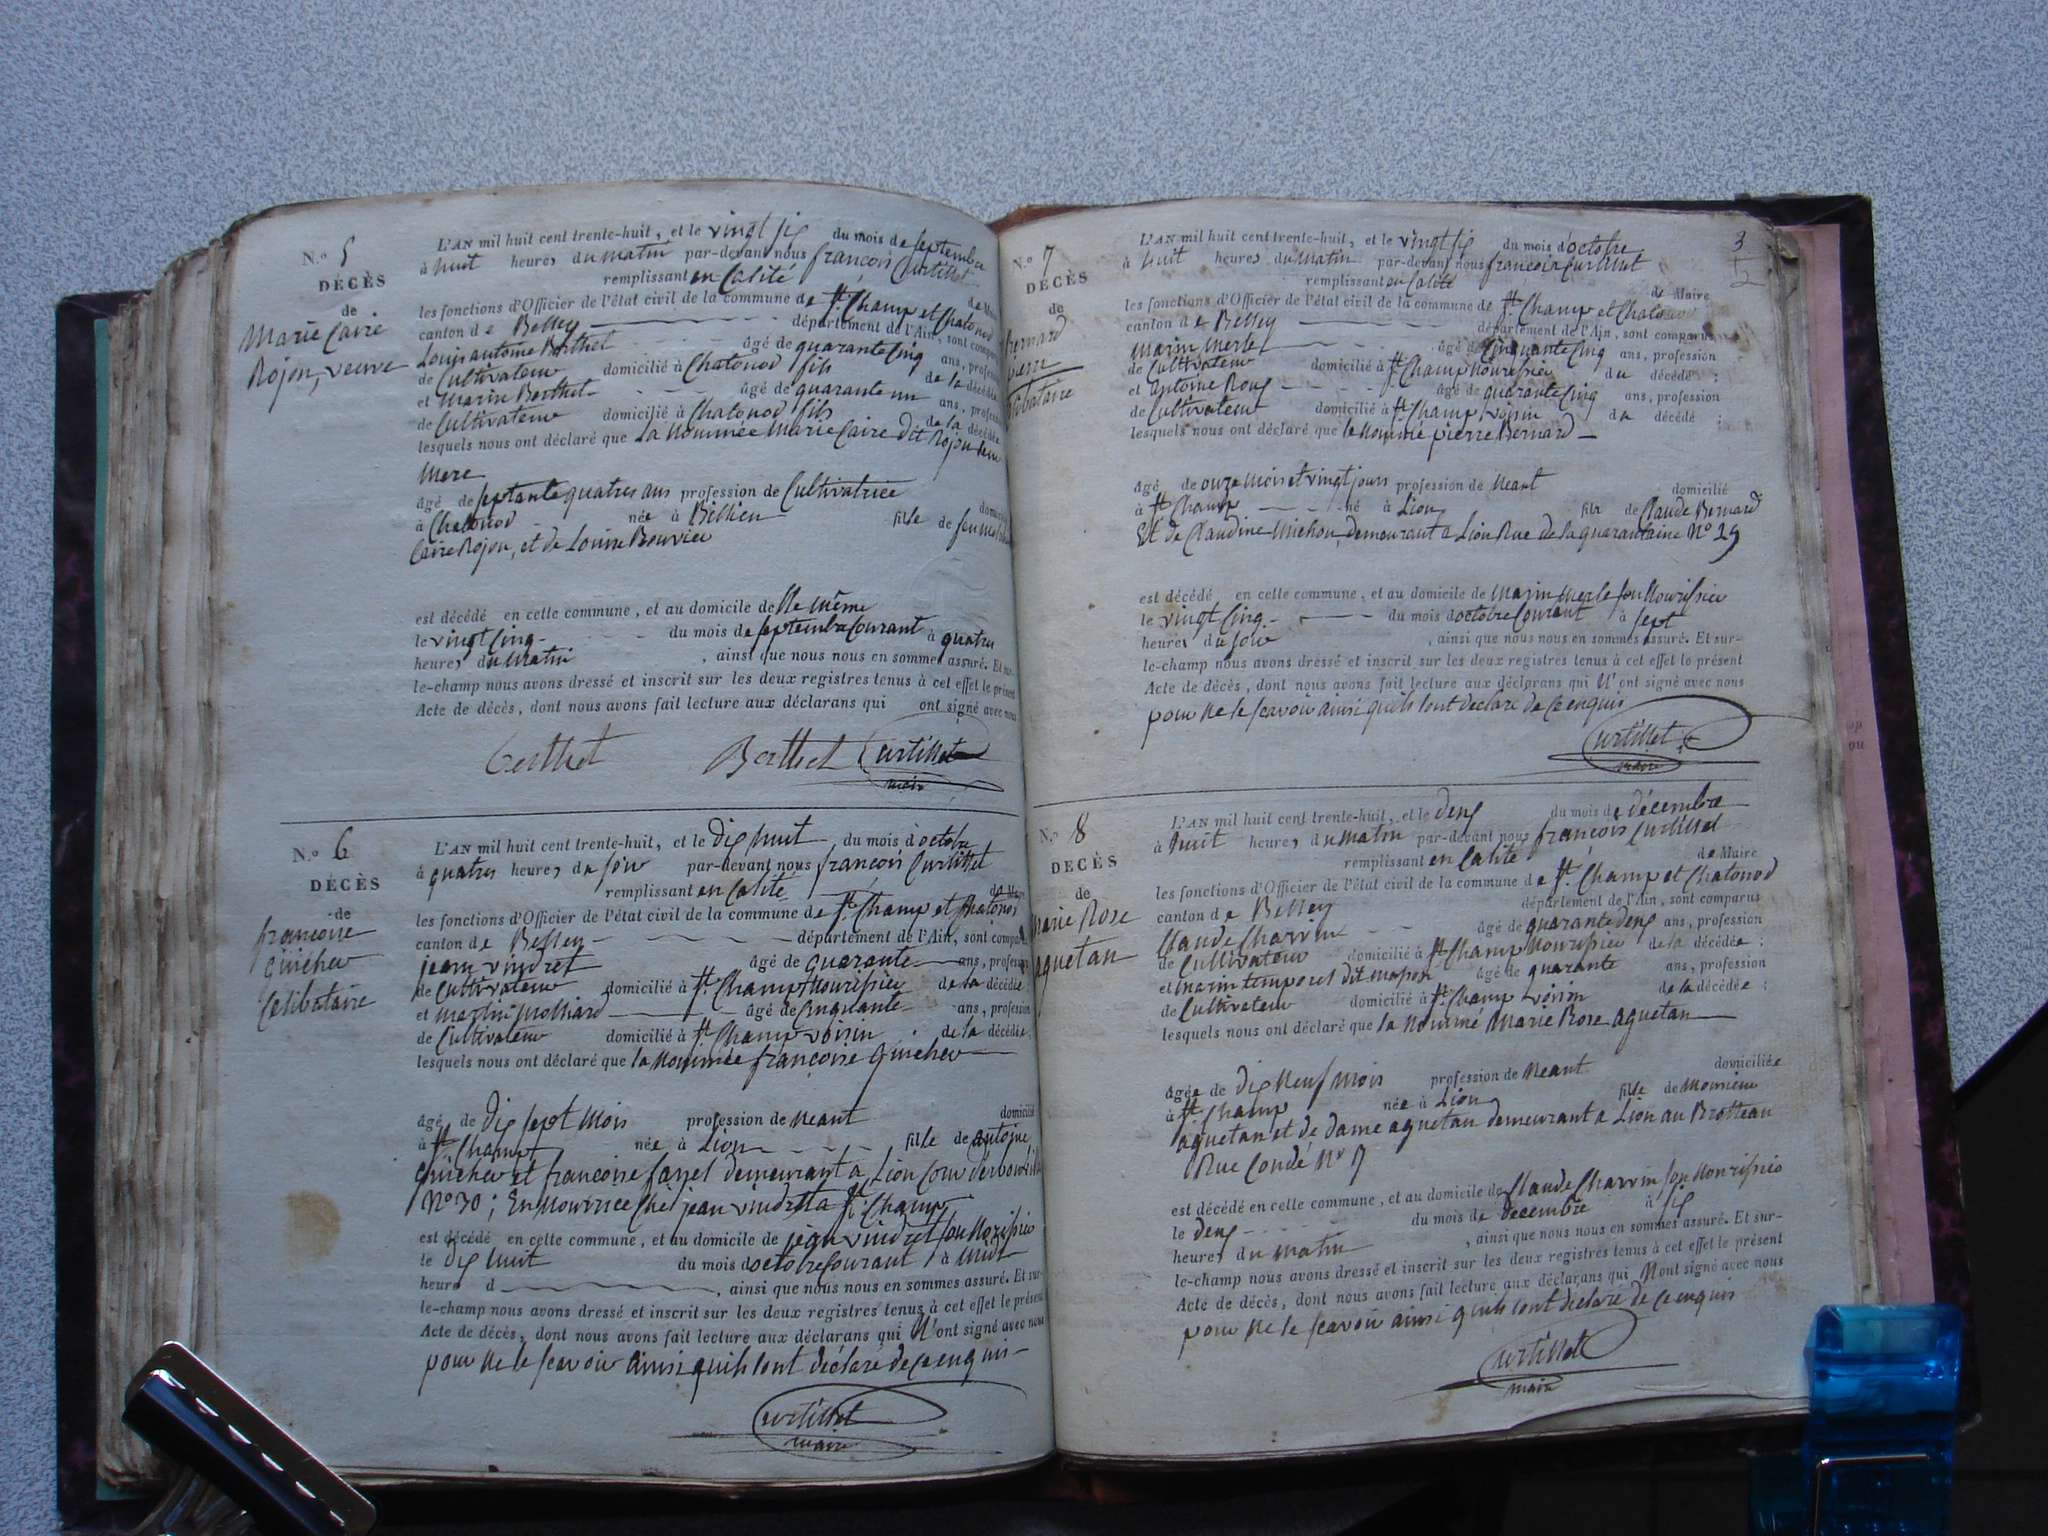 N.o 5
DÉCÈS
de
Marie Caire
Rojon, veuve
L'AN mil huit cent trente-huit, et le vingt six du mois de septembre
à huit heures du matin par-devant nous françois Curtillet
remplissant en calité de Maire
les fonctions d'Officier de l'état civil de la commune de St. Champ et Chatonod
canton de Belley département de l'Ain, sont comparus
Louis antoine Berthet âgé de quarante cinq ans, profession
de Cultivateur domicilié à Chatonod fils de la décédée
et Marin Berthet âgé de quarante un ans, profession
de Cultivateur domicilié à Chatonod fils de la décédée
lesquels nous ont déclaré que la nommée Marie Caire dit Rojon leur
mere
âgé de septante quatres ans profession de Cultivatrice
à Chatonod née à Bellieu fille de feu
Caire Rojon, et de Louise Bouvier
est décédé en cette commune, et au domicile de
le vingt cinq du mois de septembre courant à quatres
heures du matin, ainsi que nous nous en sommes assuré. Et sur-
le-champ nous avons dressé et inscrit sur les deux registres tenus à cet effet le présent
Acte de décès, dont nous avons fait lecture aux déclarans qui ont signé avec nous
Berthet Berthet Curtillet
maire
N.o 6
DÉCÈS
de
françoise
Guicher
Celibataire
L'AN mil huit cent trente-huit, et le dix huit du mois d'octobre
à quatres heures du soir par-devant nous françois Curtillet
remplissant en calité de Maire
les fonctions d'Officier de l'état civil de la commune de St. Champ et Chatonod
canton de Belley département de l'Ain, sont comparus
jean vindret âgé de quarante ans, profession
de Cultivateur domicilié à St. Champ nourissier de la décédée
et martin molliard âgé de cinquante ans, profession
de Cultivateur domicilié à St. Champ voisin de la décédée
lesquels nous ont déclaré que la nommée françoise Guicher
âgé de dix sept mois profession de neant domicilié
à St. Champ née à Lion fille de antoine
Guicher et francoise demeurant a Lion
N° 30; En nourrice chès jean vindret a St. Champ
est décédé en cette commune, et au domicile de jean vindret son norissier
le dix huit du mois d'octobre courant à midi
heure d, ainsi que nous nous en sommes assuré. Et sur-
le-champ nous avons dressé et inscrit sur les deux registres tenus à cet effet le présent
Acte de décès, dont nous avons fait lecture aux déclarans qui N'ont signé avec nous
pour ne le scavoir ainsi quils lont déclaré de ce enquis
Curtillet
maire
3
N.o 7
DÉCÈS
de
Bernard
pierre
Celibataire
L'AN mil huit cent trente-huit, et le vingt six du mois d'octobre
à huit heures du matin par-devant nous francois Curtillet
remplissant en calité de Maire
les fonctions d'Officier de l'état civil de la commune de St. Champ et Chatonod
canton de Belley département de l'Ain, sont comparus
Marin Merle âgé de cinquante cinq ans, profession
de Cultivateur domicilié à St. Champ nourissier du décédé ;
et antoine Roux âgé de quarante cinq ans, profession
de Cultivateur domicilié à St. Champ voisin du décédé ;
lesquels nous ont déclaré que le nommé pierre Bernard
âgé de onze mois et vingt jours profession de neant domicilié
à St. Champ né à Lion fils de Claude Bernard
Et de Claudine michon, demeurant a Lion Rue de la quarantaine N° 29
est décédé en cette commune, et au domicile de marin merle son nourissier
le vingt cinq du mois d'octobre courant à sept
heures du soir, ainsi que nous nous en sommes assuré. Et sur-
le-champ nous avons dressé et inscrit sur les deux registres tenus à cet effet le présent
Acte de décès, dont nous avons fait lecture aux déclarans qui N'ont signé avec nous
pour ne le scavoir ainsi quils lont déclaré de ce enquis
Curtillet
maire
N.o 8
DÉCÈS
de
Marie Rose
aguetan
L'AN mil huit cent trente-huit, et le deux du mois de décembre
à huit heures du matin par-devant nous françois Curtillet
remplissant en calité de Maire
les fonctions d'Officier de l'état civil de la commune de St. Champ et Chatonod
canton de Belley département de l'Ain, sont comparus
Claude Charvin âgé de quarante deux ans, profession
de Cultivateur domicilié à St. Champ nourissier de la décédée ;
et marin temporel dit âgé de quarante ans, profession
de Cultivateur domicilié à St. Champ voisin de la décédée ;
lesquels nous ont déclaré que la nommé Marie Rose aguetan
âgée de dix neuf mois profession de neant domiciliée
à St. Champ née à Lion fille de Monsieur
aguetan et de dame aguetan demeurant a Lion au Brotteau
Rue Condé N°
est décédé en cette commune, et au domicile de Claude Charvin son nourissier
le deux du mois de décembre à six
heures du matin, ainsi que nous nous en sommes assuré. Et sur-
le-champ nous avons dressé et inscrit sur les deux registres tenus à cet effet le présent
Acte de décès, dont nous avons fait lecture aux déclarans qui Nont signé avec nous
pour ne le scavoir ainsi quils lont déclaré de ce enquis
Curtillet
maire